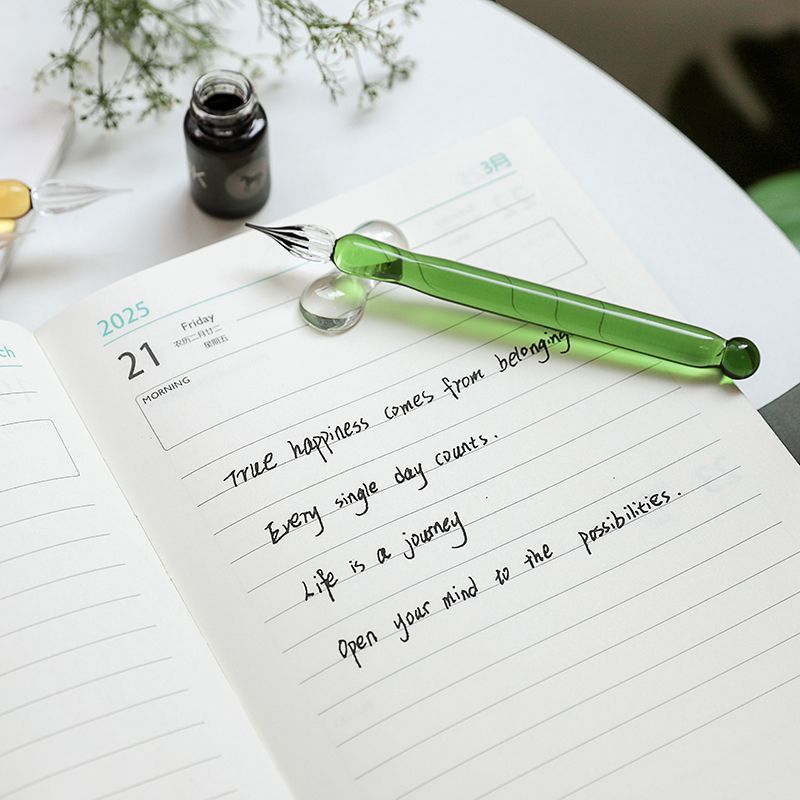 ch
2025
3月
21 Friday
农历二月廿二
星期五
MORNING
True happiness comes from belonging
Every single day counts.
Life is a journey
Open your mind to the possibilities.